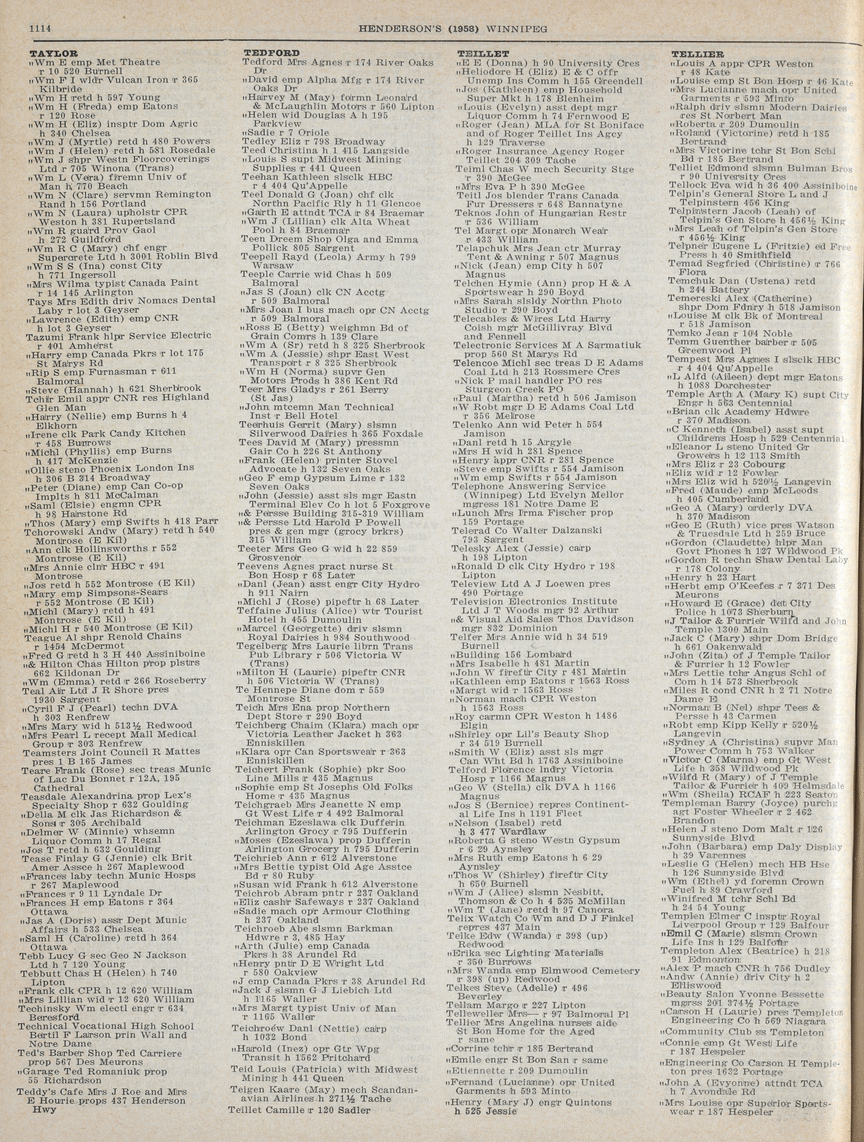 1114
HENDERSON'S (1958) WINNIPEG
TAYLOR
„Wm E emp Met Theatre
r 10 520 Burnell
„Wm F I wldr Vulcan Iron r 365
Kilbride
„Wm H retd h 597 Young
„Wm H (Freda) emp Eatons
r 120 Rose
„Wm H (Eliz) insptr Dom Agric
h 340 Chelsea
„Wm J (Myrtle) retd h 480 Powers
„Wm J (Helen) retd h 581 Rosedale
„Wm J shpr Westn Floorcoverings
Ltd r 705 Winona (Trans)
„Wm L (Vera) firemn Univ of
Man h 770 Beach
„Wm N (Clare) servmn Remington
Rand h 156 Portland
„Wm N (Laura) upholstr CPR
Weston h 381 Rupertsland
„Wm R guard Prov Gaol
h 272 Guildford
„Wm R C (Mary) chf engr
Supercrete Ltd h 3001 Roblin Blvd
„Wm S S (Ina) const City
h 771 Ingersoll
„Mrs Wilma typist Canada Paint
r 14 145 Arlington
Tays Mrs Edith driv Nomacs Dental
Laby r lot 3 Geyser
„Lawrence (Edith) emp CNR
h lot 3 Geyser
Tazumi Frank hlpr Service Electric
r 401 Amherst
„Harry emp Canada Pkrs r lot 175
St Marys Rd
„Rip S emp Furnasman r 611
Balmoral
„Steve (Hannah) h 621 Sherbrook
Tchir Emil appr CNR res Highland
Glen Man
„Harry (Nellie) emp Burns h 4
Elkhorn
„Irene clk Park Candy Kitchen
r 458 Burrows
„Michl (Phyllis) emp Burns
h 417 McKenzie
„Ollie steno Phoenix London Ins
h 306 B 314 Broadway
„Peter (Diane) emp Can Co-op
Implts h 811 McCalman
„Saml (Elsie) engmn CPR
h 98 Hairstone Rd
„Thos (Mary) emp Swifts h 418 Parr
Tchorowski Andw (Mary) retd h 540
Montrose (E Kil)
„Ann clk Hollinsworths r 552
Montrose (E Kil)
„Mrs Annie clnr HBC r 491
Montrose
„Jos retd h 552 Montrose (E Kil)
„Mary emp Simpsons-Sears
r 552 Montrose (E Kil)
„Michl (Mary) retd h 491
Montrose (E Kil)
„Michl H r 540 Montrose (E Kil)
Teague Al shpr Renold Chains
r 1454 McDermot
„Fred G retd h 3 H 440 Assiniboine
„& Hilton Chas Hilton prop plstrs
662 Kildonan Dr
„Wm (Emma) retd r 266 Roseberry
Teal Air Ltd J R Shore pres
1930 Sargent
„Cyril F J (Pearl) techn DVA
h 303 Renfrew
„Mrs Mary wid h 513½ Redwood
„Mrs Pearl L recept Mall Medical
Group r 303 Renfrew
Teamsters Joint Council R Mattes
pres 1 B 165 James
Teare Frank (Rose) sec treas Munic
of Lac Du Bonnet r 12A, 195
Cathedral
Teasdale Alexandrina prop Lex's
Specialty Shop r 632 Goulding
„Della M clk Jas Richardson &
Sons r 305 Archibald
„Delmer W (Minnie) whsemn
Liquor Comm h 17 Regal
„Jos T retd h 632 Goulding
Tease Finlay G (Jennie) clk Brit
Amer Assce h 267 Maplewood
„Frances laby techn Munic Hosps
r 267 Maplewood
„Frances r 9 11 Lyndale Dr
„Frances H emp Eatons r 364
Ottawa
„Jas A (Doris) assr Dept Munic
Affairs h 533 Chelsea
„Saml H (Caroline) retd h 364
Ottawa
Tebb Lucy G sec Geo N Jackson
Ltd h 7 120 Young
Tebbutt Chas H (Helen) h 740
Lipton
„Frank clk CPR h 12 620 William
„Mrs Lillian wid r 12 620 William
Techinsky Wm electl engr r 634
Beresford
Technical Vocational High School
Bertil F Larson prin Wall and
Notre Dame
Ted's Barber Shop Ted Carriere
prop 567 Des Meurons
„Garage Ted Romaniuk prop
55 Richardson
Teddy's Cafe Mrs J Roe and Mrs
E Hourie props 437 Henderson
Hwy
TEDFORD
Tedford Mrs Agnes r 174 River Oaks
Dr
„David emp Alpha Mfg r 174 River
Oaks Dr
„Harvey M (May) formn Leonard
& McLaughlin Motors r 560 Lipton
„Helen wid Douglas A h 195
Parkview
„Sadie r 7 Oriole
Tedley Eliz r 798 Broadway
Teed Christina h 1 415 Langside
„Louis S supt Midwest Mining
Supplies r 441 Queen
Teehan Kathleen slsclk HBC
r 4 404 Qu'Appelle
Teel Donald G (Joan) chf clk
Northn Pacific Rly h 11 Glencoe
„Garth E attndt TCA r 84 Braemar
„Wm J (Lillian) clk Alta Wheat
Pool h 84 Braemar
Teen Dreem Shop Olga and Emma
Pollick 805 Sargent
Teepell Rayd (Leola) Army h 799
Warsaw
Teeple Carrie wid Chas h 509
Balmoral
„Jas S (Joan) clk CN Acctg
r 509 Balmoral
„Mrs Joan I bus mach opr CN Acctg
r 509 Balmoral
„Ross E (Betty) weighmn Bd of
Grain Comrs h 139 Clare
„Wm A (Sr) retd h 8 325 Sherbrook
„Wm A (Jessie) shpr East West
Transport r 8 325 Sherbrook
„Wm H (Norma) supvr Gen
Motors Prods h 386 Kent Rd
Teer Mrs Gladys r 261 Berry
(St Jas)
„John mtcemn Man Technical
Inst r Bell Hotel
Teerhuis Gerrit (Mary) slsmn
Silverwood Dairies h 365 Foxdale
Tees David M (Mary) pressmn
Gair Co h 226 St Anthony
„Frank (Helen) printer Stovel
Advocate h 132 Seven Oaks
„Geo F emp Gypsum Lime r 132
Seven Oaks
„John (Jessie) asst sls mgr Eastn
Terminal Elev Co h lot 5 Foxgrove
„& Persse Building 315-319 William
„& Persse Ltd Harold P Powell
pres & gen mgr (grocy brkrs)
315 William
Teeter Mrs Geo G wid h 22 859
Grosvenor
Teevens Agnes pract nurse St
Bon Hosp r 68 Later
„Danl (Jean) asst engr City Hydro
h 911 Nairn
„Michl J (Rose) pipeftr h 68 Later
Teffaine Julius (Alice) wtr Tourist
Hotel h 455 Dumoulin
„Marcel (Georgette) driv slsmn
Royal Dairies h 984 Southwood
Tegelberg Mrs Laurie librn Trans
Pub Library r 506 Victoria W
(Trans)
„Milton H (Laurie) pipeftr CNR
h 506 Victoria W (Trans)
Te Hennepe Diane dom r 559
Montrose St
Teich Mrs Ena prop Northern
Dept Store r 290 Boyd
Teichberg Chaim (Klara) mach opr
Victoria Leather Jacket h 363
Enniskillen
„Klara opr Can Sportswear r 363
Enniskillen
Teichert Frank (Sophie) pkr Soo
Line Mills r 435 Magnus
„Sophie emp St Josephs Old Folks
Home r 435 Magnus
Teichgraeb Mrs Jeanette N emp
Gt West Life r 4 492 Balmoral
Teichman Ezeslawa clk Dufferin
Arlington Grocy r 795 Dufferin
„Moses (Ezeslawa) prop Dufferin
Arlington Grocery h 795 Dufferin
Teichrieb Ann r 612 Alverstone
„Mrs Bettie typist Old Age Asstce
Bd r 80 Ruby
„Susan wid Frank h 612 Alverstone
Teichrob Abram pntr r 237 Oakland
„Eliz cashr Safeways r 237 Oakland
„Sadie mach opr Armour Clothing
h 237 Oakland
Teichroeb Abe slsmn Barkman
Hdwre r 3, 485 Hay
„Arth (Julie) emp Canada
Pkrs h 38 Arundel Rd
„Henry pntr D E Wright Ltd
r 580 Oakview
„J emp Canada Pkrs r 38 Arundel Rd
„Jack J slsmn G J Liebich Ltd
h 1165 Waller
„Mrs Margt typist Univ of Man
r 1165 Waller
Teichroëw Danl (Nettie) carp
h 1032 Bond
„Harold (Inez) opr Gtr Wpg
Transit h 1562 Pritchard
Teid Louis (Patricia) with Midwest
Mining h 441 Queen
Teigen Kaare (May) mech Scandan-
avian Airlines h 271½ Tache
Teillet Camille r 120 Sadler
TEILLET
„E E (Donna) h 90 University Cres
„Heliodore H (Eliz) E & C offr
Unemp Ins Comm h 155 Greendell
„Jos (Kathleen) emp Household
Super Mkt h 178 Blenheim
„Louis (Evelyn) asst dept mgr
Liquor Comm h 74 Fernwood E
„Roger (Jean) MLA for St Boniface
and of Roger Teillet Ins Agcy
h 129 Traverse
„Roger Insurance Agency Roger
Teillet 204 309 Tache
Teiml Chas W mech Security Stge
r 390 McGee
„Mrs Eva P h 390 McGee
Teitl Jos blender Trans Canada
Fur Dressers r 648 Bannatyne
Teknos John of Hungarian Restr
r 536 William
Tel Margt opr Monarch Wear
r 433 William
Telapchuk Mrs Jean ctr Murray
Tent & Awning r 507 Magnus
„Nick (Jean) emp City h 507
Magnus
Telchen Hymie (Ann) prop H & A
Sportswear h 290 Boyd
„Mrs Sarah slsldy Northn Photo
Studio r 290 Boyd
Telecables & Wires Ltd Harry
Coish mgr McGillivray Blvd
and Fennell
Telectronic Services M A Sarmatiuk
prop 560 St Marys Rd
Telencoe Michl sec treas D E Adams
Coal Ltd h 213 Rossmere Cres
„Nick P mail handler PO res
Sturgeon Creek PO
„Paul (Martha) retd h 506 Jamison
„W Robt mgr D E Adams Coal Ltd
r 356 Melrose
Telenko Ann wid Peter h 554
Jamison
„Danl retd h 15 Argyle
„Mrs H wid h 281 Spence
„Henry appr CNR r 281 Spence
„Steve emp Swifts r 554 Jamison
„Wm emp Swifts r 554 Jamison
Telephone Answering Service
(Winnipeg) Ltd Evelyn Mellor
mgress 181 Notre Dame E
„Lunch Mrs Irma Pischer prop
159 Portage
Telerad Co Walter Dalzanski
793 Sargent
Telesky Alex (Jessie) carp
h 198 Lipton
„Ronald D clk City Hydro r 198
Lipton
Teleview Ltd A J Loewen pres
490 Portage
Television Electronics Institute
Ltd J T Woods mgr 92 Arthur
„& Visual Aid Sales Thos Davidson
mgr 832 Dominion
Telfer Mrs Annie wid h 34 519
Burnell
„Building 156 Lombard
„Mrs Isabelle h 481 Martin
„John W fireftr City r 481 Martin
„Kathleen emp Eatons r 1563 Ross
„Margt wid r 1563 Ross
„Norman mach CPR Weston
h 1563 Ross
„Roy carmn CPR Weston h 1486
Elgin
„Shirley opr Lil's Beauty Shop
r 34 519 Burnell
„Smith W (Eliz) asst sls mgr
Can Wht Bd h 1763 Assiniboine
Telford Florence lndry Victoria
Hosp r 1166 Magnus
„Geo W (Stella) clk DVA h 1166
Magnus
„Jos S (Bernice) repres Continent-
al Life Ins h 1191 Fleet
„Nelson (Isabel) retd
h 3 477 Wardlaw
„Roberta G steno Westn Gypsum
r 6 29 Aynsley
„Mrs Ruth emp Eatons h 6 29
Aynsley
„Thos W (Shirley) fireftr City
h 650 Burnell
„Wm J (Alice) slsmn Nesbitt,
Thomson & Co h 4 535 McMillan
„Wm T (Jane) retd h 97 Canora
Telix Watch Co Wm and D J Finkel
repres 437 Main
Telke Edw (Wanda) r 398 (up)
Redwood
„Erika sec Lighting Materials
r 350 Burrows
„Mrs Wanda emp Elmwood Cemetery
r 398 (up) Redwood
Telkes Steve (Adelle) r 496
Beverley
Tellam Margo r 227 Lipton
Telleweller Mrs— r 97 Balmoral Pl
Tellier Mrs Angelina nurses aide
St Bon Home for the Aged
r same
„Corrine tchr r 185 Bertrand
„Emile engr St Bon San r same
„Etiennette r 209 Dumoulin
„Fernand (Lucianne) opr United
Garments h 593 Minto
„Henry (Mary J) engr Quintons
h 525 Jessie
TELLIER
„Louis A appr CPR Weston
r 48 Kate
„Louise emp St Bon Hosp r 46 Kate
„Mrs Lucianne mach opr United
Garments r 593 Minto
„Ralph driv slsmn Modern Dairies
res St Norbert Man
„Roberta r 209 Dumoulin
„Roland (Victorine) retd h 185
Bertrand
„Mrs Victorine tchr St Bon Schl
Bd r 185 Bertrand
Telliet Edmond slsmn Bulman Bros
r 90 University Cres
Tellock Eva wid h 36 400 Assiniboine
Telpin's General Store L and J
Telpinstern 456 King
Telpinstern Jacob (Leah) of
Telpin's Gen Store h 456½ King
„Mrs Leah of Telpin's Gen Store
r 456½ King
Telpner Eugene L (Fritzie) ed Free
Press h 40 Smithfield
Temad Segfried (Christine) r 766
Flora
Temchuk Dan (Ustena) retd
h 244 Battery
Temereski Alex (Catherine)
shpr Dom Fdnry h 518 Jamison
„Louise M clk Bk of Montreal
r 518 Jamison
Temko Jean r 104 Noble
Temm Guenther barber r 505
Greenwood Pl
Tempest Mrs Agnes I slsclk HBC
r 4 404 Qu'Appelle
„L Alfd (Aileen) dept mgr Eatons
h 1088 Dorchester
Temple Arth A (Mary K) supt City
Engr h 563 Centennial
„Brian clk Academy Hdwre
r 370 Madison
„C Kenneth (Isabel) asst supt
Childrens Hosp h 529 Centennial
„Eleanor L steno United Gr
Growers h 12 113 Smith
„Mrs Eliz r 23 Cobourg
„Eliz wid r 12 Fowler
„Mrs Eliz wid h 520½ Langevin
„Fred (Maude) emp McLeods
h 405 Cumberland
„Geo A (Mary) orderly DVA
h 370 Madison
„Geo E (Ruth) vice pres Watson
& Truesdale Ltd h 259 Bruce
„Gordon (Claudette) hlpr Man
Govt Phones h 127 Wildwood Pk
„Gordon R techn Shaw Dental Laby
r 178 Colony
„Henry h 23 Hart
„Herbt emp O'Keefes r 7 371 Des
Meurons
„Howard E (Grace) det City
Police h 1073 Sherburn
„J Tailor & Furrier Wilfd and John
Temple 1300 Main
„Jack C (Mary) shpr Dom Bridge
h 661 Oakenwald
„John (Zita) of J Temple Tailor
& Furrier h 12 Fowler
„Mrs Lettie tchr Angus Schl of
Com h 14 573 Sherbrook
„Miles R cond CNR h 2 71 Notre
Dame E
„Norman B (Nel) shpr Tees &
Persse h 43 Carmen
„Robt emp Kipp Kelly r 520½
Langevin
„Sydney A (Christina) supvr Man
Power Comm h 753 Walker
„Victor C (Marna) emp Gt West
Life h 358 Wildwood Pk
„Wilfd R (Mary) of J Temple
Tailor & Furrier h 409 Helmsdale
„Wm (Sheila) RCAF h 223 Seaton
Templeman Barry (Joyce) purchg
agt Foster Wheeler r 2 462
Brandon
„Helen J steno Dom Malt r 126
Sunnyside Blvd
„John (Barbara) emp Daly Display
h 39 Varennes
„Leslie G (Helen) mech HB Hse
h 126 Sunnyside Blvd
„Wm (Ethel) yd foremn Crown
Fuel h 89 Crawford
„Winifred M tchr Schl Bd
h 24 54 Young
Templen Elmer C insptr Royal
Liverpool Group r 129 Balfour
„Emil C (Marie) slsmn Crown
Life Ins h 129 Balfour
Templeton Alex (Beatrice) h 218
91 Edmonton
„Alex P mach CNR h 756 Dudley
„Andw (Annie) driv City h 2
Elliswood
„Beauty Salon Yvonne Bessette
mgrss 201 374½ Portage
„Carson H (Laurie) pres Templeton
Engineering Co h 569 Niagara
„Community Club ss Templeton
„Connie emp Gt West Life
r 187 Hespeler
„Engineering Co Carson H Temple-
ton pres 1632 Portage
„John A (Evyonne) attndt TCA
h 7 Avondale Rd
„Mrs Louise opr Superior Sports-
wear r 187 Hespeler